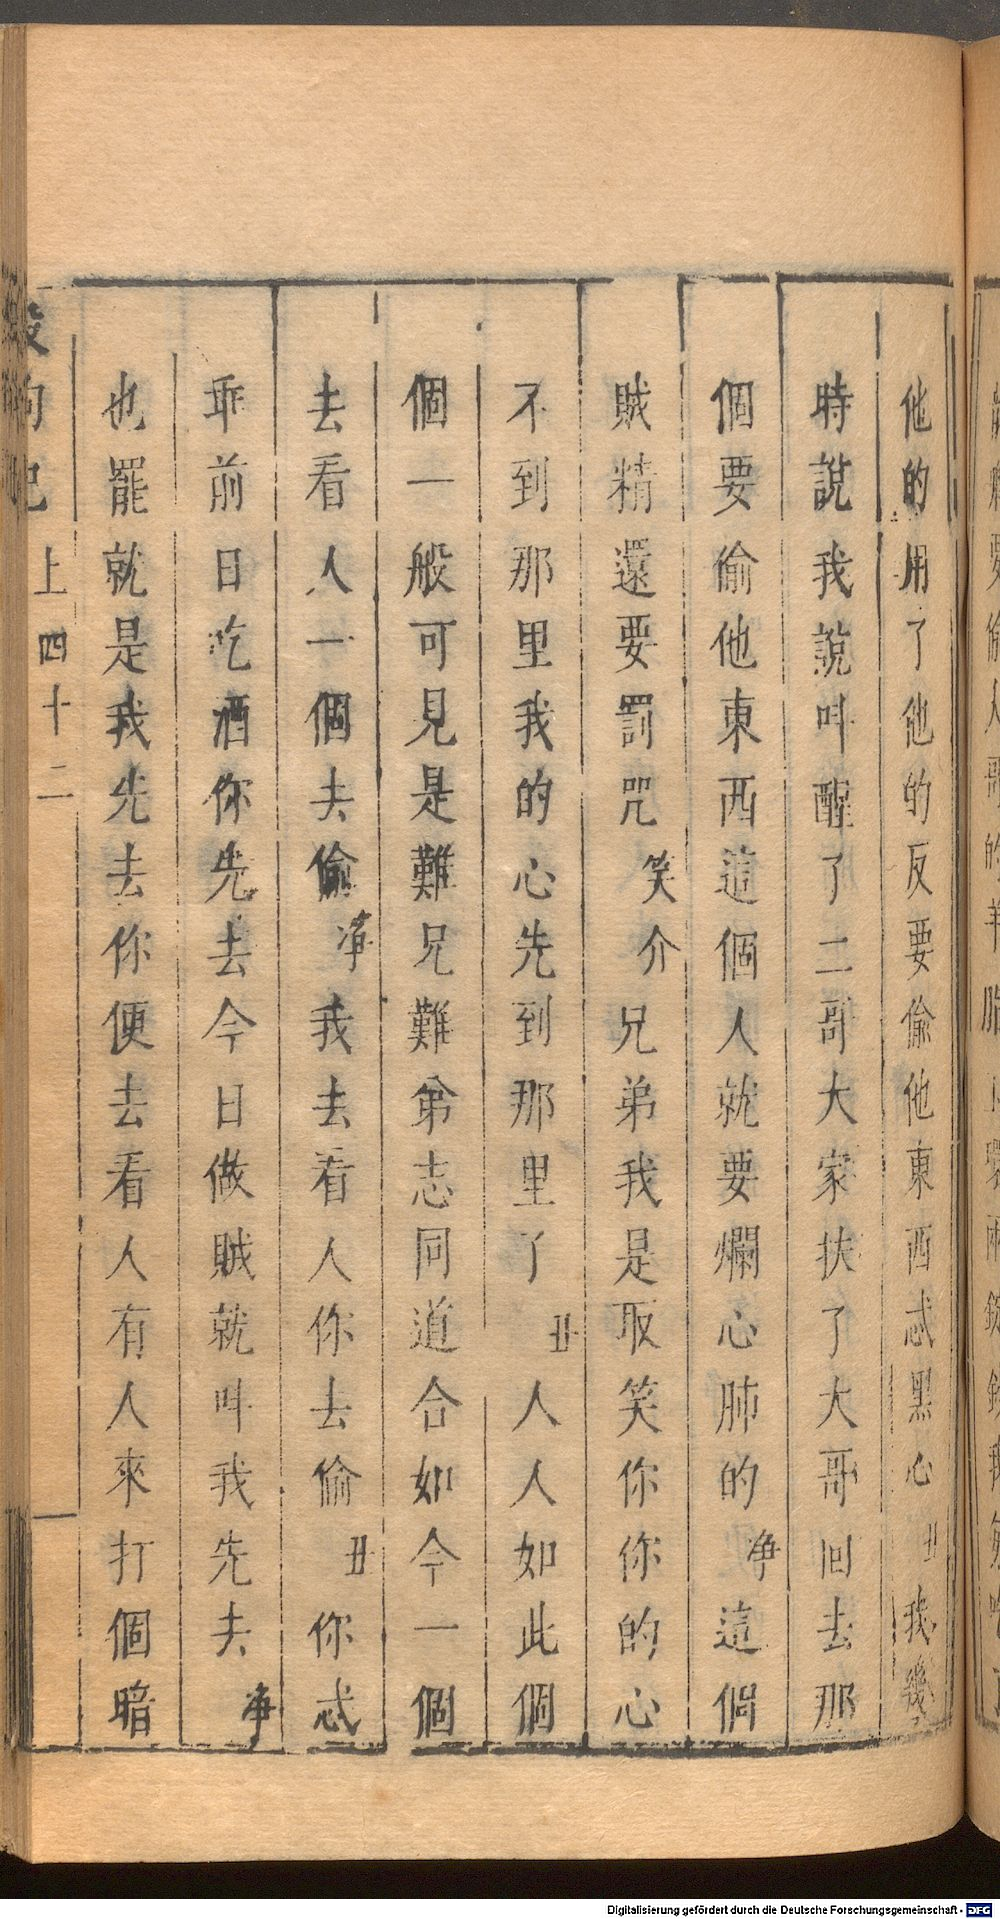 他的用了他的反要偷他東西忒黑心丑我幾
時說我說叫醒了二哥大家扶了大哥回去那
個要偷他東西這個人就要爛心肺的净這個
賊精還要罰咒笑介兄弟我是取笑你你的心
不到那里我的心先到那里了丑人人如此個
個一般可見是難兄難弟志同道合如今一個
去看人一個去偷净我去看人你去偷丑你忒
乖前日吃酒你先去今日做賊就叫我先去净
也罷就是我先去你便去看人有人來打個暗
殺狗記 上 四十二
Digitalisierung gefördert durch die Deutsche Forschungsgemeinschaft - DFG